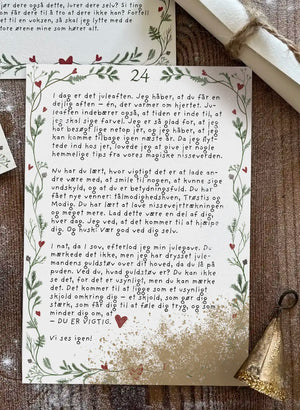 jør dere også dette, livret dere selv? Si ting
om får dere til å tro at dere ikke kan? Fortell
til en voksen, så skal jeg lytte med de
store ørene mine som hører alt.
24
I dag er det juleaften. Jeg håber, at du får en
dejlig aften – én, der varmer om hjertet. Ju-
leaften indebærer også, at tiden er inde til, at
jeg skal sige farvel. Jeg er så glad for, at jeg
har besøgt lige netop jer, og jeg håber, at jeg
kan komme tilbage igen næste år. Da jeg flyt-
tede ind hos jer, lovede jeg at give jer nogle
hemmelige tips fra vores magiske nisseverden.
Nu har du lært, hvor vigtigt det er at lade an-
dre være med, at smile til nogen, at kunne sige
undskyld, og at du er betydningsfuld. Du har
fået nye venner: tålmodighedshuen, Trøstis og
Modig. Du har lært at lave nissevejrtrækningen
og meget mere. Lad dette være en del af dig,
hver dag. Jeg ved, at det kommer til at hjælpe
dig. Og husk: Vær god ved dig selv.
I nat, da I sov, efterlod jeg min julegave. Du
mærkede det ikke, men jeg har drysset jule-
mandens guldstøv over dit hoved, da du lå på
puden. Ved du, hvad guldstøv er? Du kan ikke
se det, for det er usynligt, men du kan mærke
det. Det kommer til at ligge som et usynligt
skjold omkring dig – et skjold, som gør dig
stærk, som får dig til at føle dig tryg, og som
minder dig om, at
– DU ER VIGTIG.
Vi ses igen!